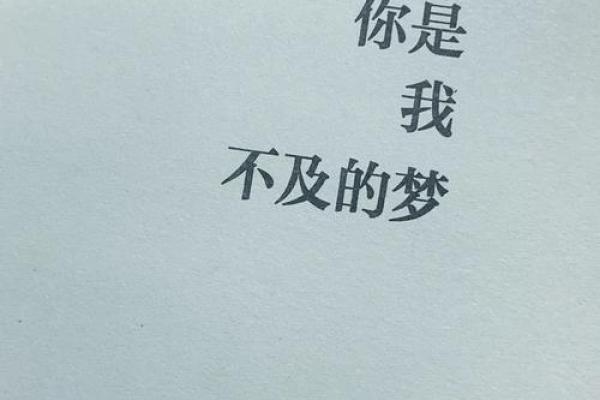 你是
我
不及的梦